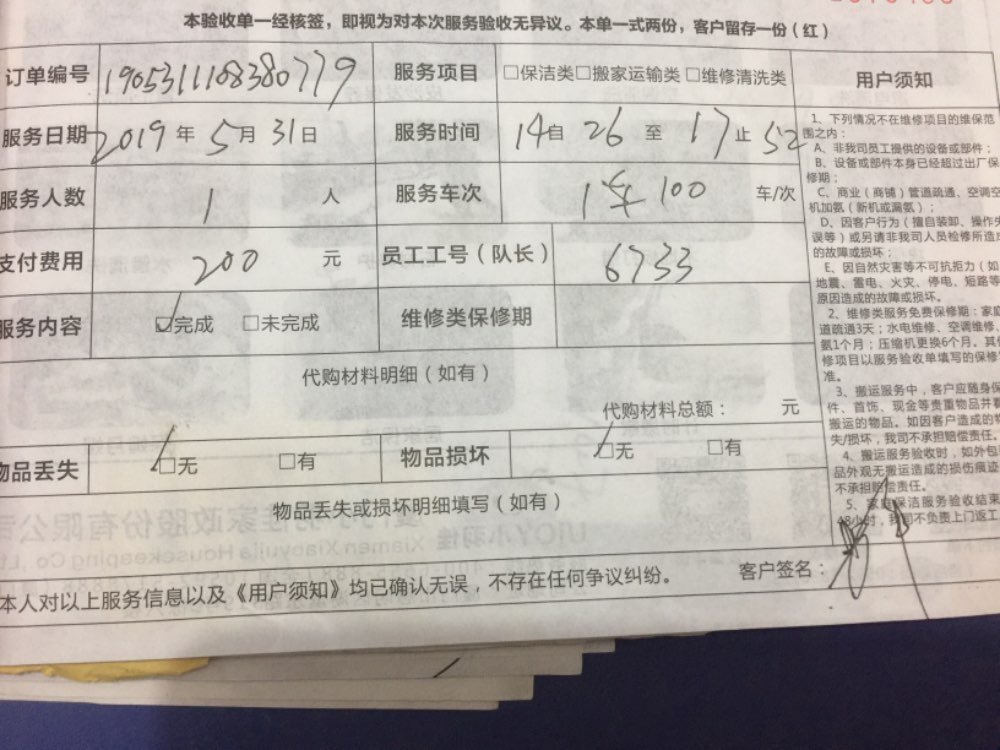 本验收单一经核签，即视为对本次服务验收无异议。本单一式两份，客户留存一份（红）
订单编号 1905311108380779 服务项目 □保洁类□搬家运输类□维修清洗类
服务日期 2019 年 5 月 31 日 服务时间 14 自 26 至 17 止 52
服务人数 1 人 服务车次 1车 100 车/次
支付费用 200 元 员工工号（队长） 6733
服务内容 ☑完成 □未完成 维修类保修期
代购材料明细（如有）
代购材料总额： 元
物品丢失 ☑无 □有 物品损坏 ☑无 □有
物品丢失或损坏明细填写（如有）
本人对以上服务信息以及《用户须知》均已确认无误，不存在任何争议纠纷。 客户签名：
用户须知
1、下列情况不在维修项目的维保范
围之内：
A、非我司员工提供的设备或部件；
B、设备或部件本身已经超过出厂保
修期；
C、商业（商铺）管道疏通、空调空
机加氨（新机或漏氨）；
D、因客户行为（擅自装卸、操作失
误等）或另请非我司人员检修所造成
的故障或损坏；
E、因自然灾害等不可抗拒力（如
地震、雷电、火灾、停电、短路等
原因造成的故障或损坏。
2、维修类服务免费保修期：家庭
道疏通3天；水电维修、空调维修、
氨1个月；压缩机更换6个月。其他
修项目以服务验收单填写的保修
准。
3、搬运服务中，客户应随身保
件、首饰、现金等贵重物品并
搬运的物品。如因客户造成的物
失/损坏，我司不承担赔偿责任。
4、搬运服务验收时，如外包
品外观无搬运造成的损伤痕迹
不承担赔偿责任。
5、家庭保洁服务验收结束
48小时，我司不负责上门返工